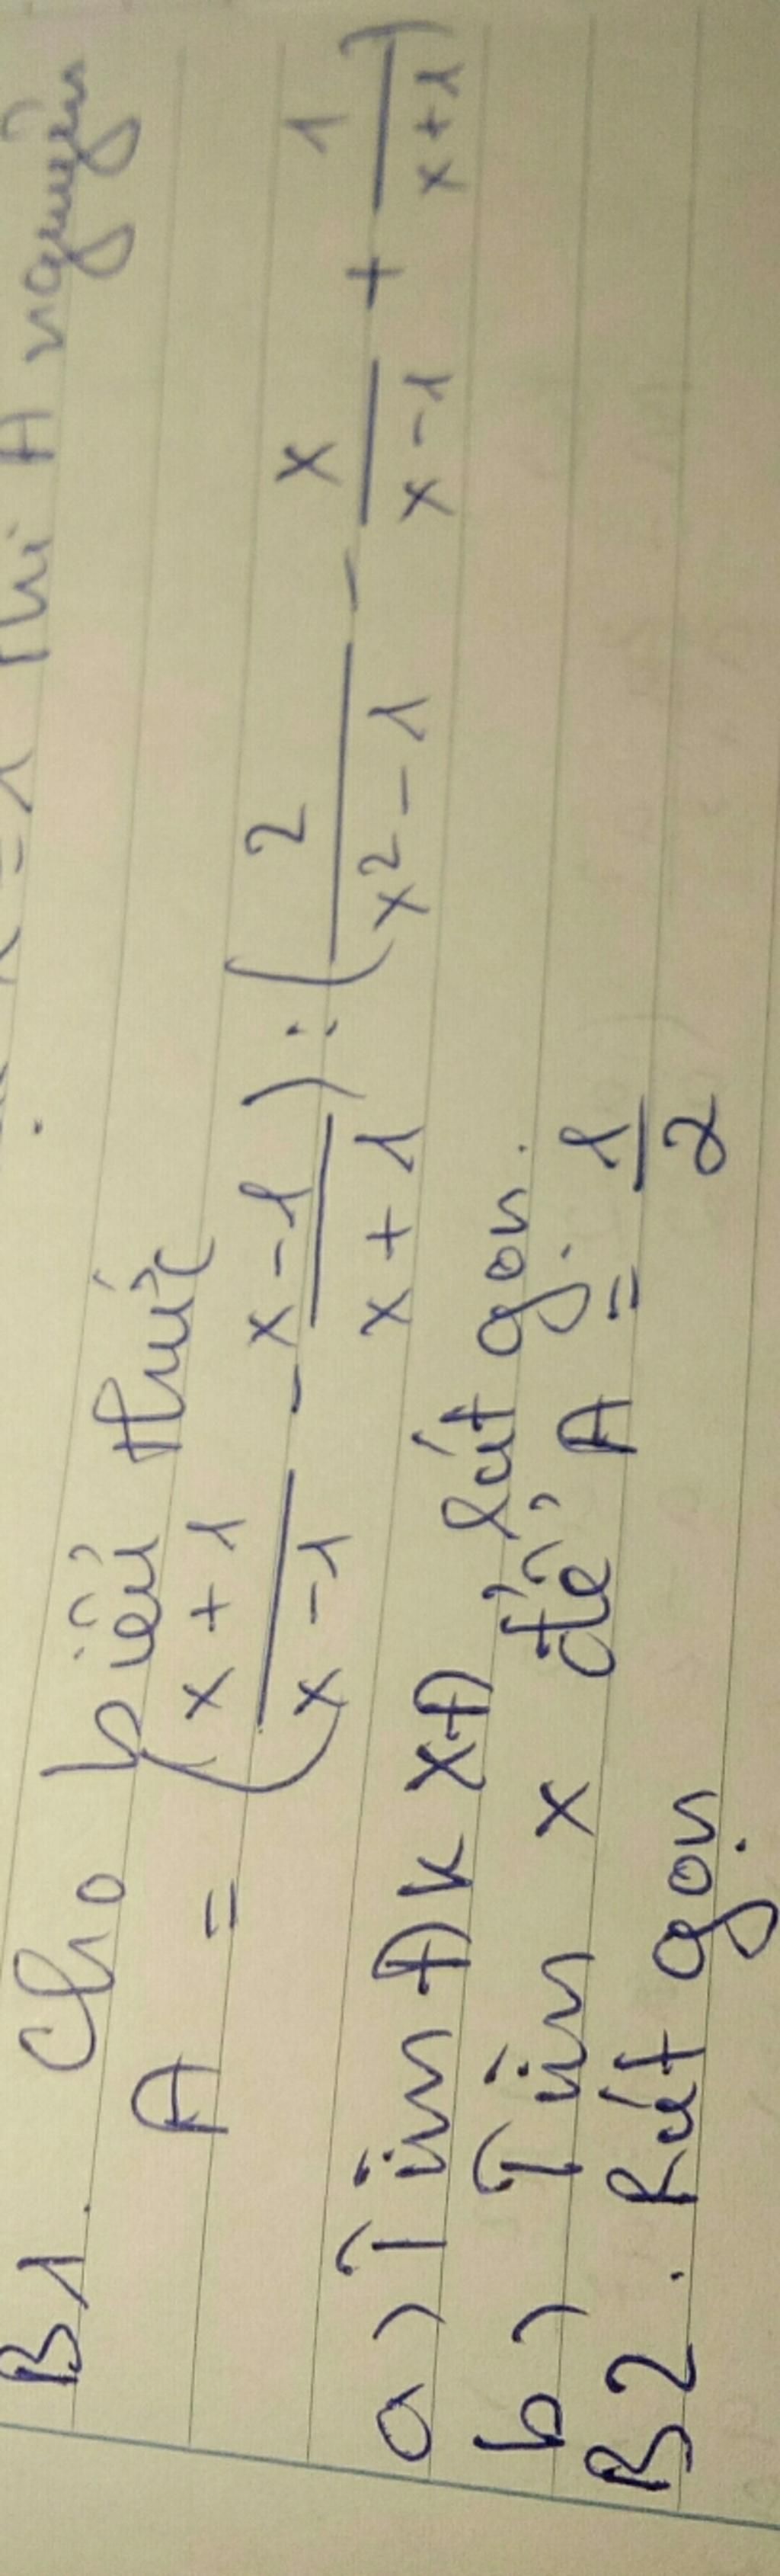 thì A nguyên
B1. Cho biểu thức
A = (\frac{x+1}{x-1} - \frac{x-1}{x+1}) : (\frac{2}{x^2-1} - \frac{x}{x-1} + \frac{1}{x+1})
a) Tìm ĐKXĐ, rút gọn.
b) Tìm x để A = \frac{1}{2}
B2. Rút gọn